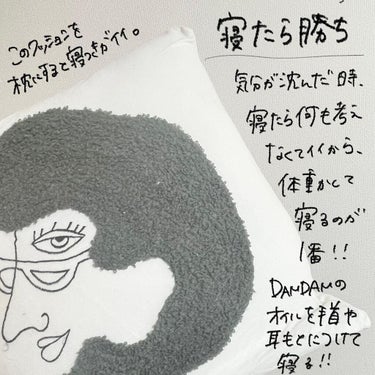 このクッションを
枕にすると寝つきがイイ。
寝たら勝ち
気分が沈んだ時、
寝たら何も考え
なくてイイから、
体動かして
寝るのが
1番!!
DAMDAMの
オイルを手首や
耳もとにつけて
寝る!!